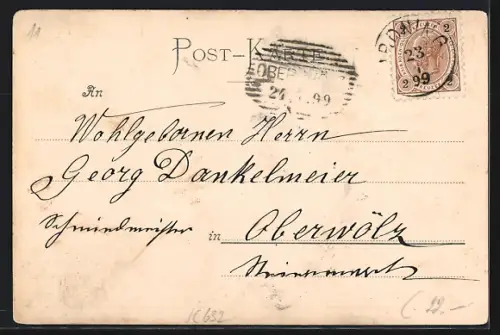 11
POST-KARTE
OBER
24. 99
23
99
2 2
2 2
An
Wohlgebornen Herrn
Georg Dankelmeier
Schmiedmeister
in Oberwölz
Steiermark
K632